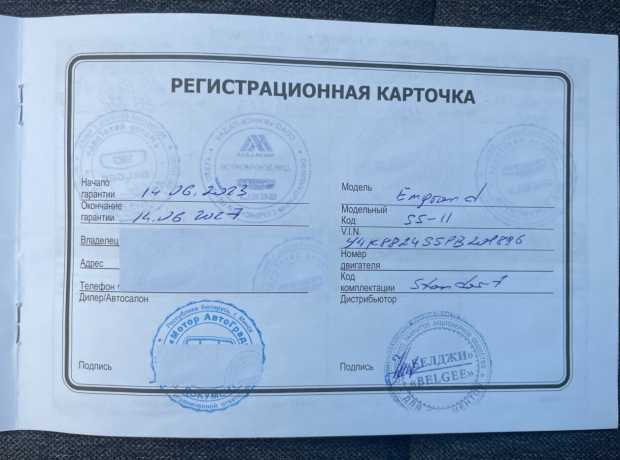 РЕГИСТРАЦИОННАЯ КАРТОЧКА
Начало
гарантии 14.06.2023
Окончание
гарантии 14.06 2027
Владелец
Адрес
Телефон
Дилер/Автосалон
Республика Беларусь, г. Минск
«Мотор АвтоГрад»
Подпись
Модель Emgrand
Модельный
Код SS-11
V.I.N.
Номер
двигателя
Код
комплектации Standart
Дистрибьютор
«БЕЛДЖИ»
«BELGEE»
Подпись